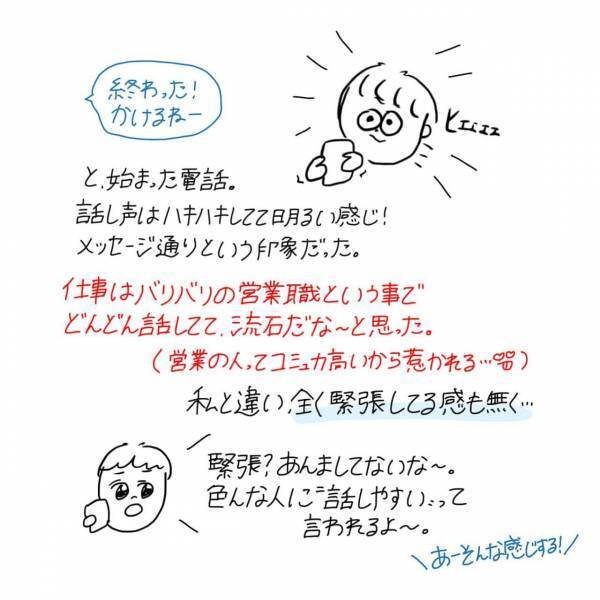 終わった!
かけるねー
ヒエェェェ
と、始まった電話。
話し声はハキハキしてて明るい感じ!
メッセージ通りという印象だった。
仕事はバリバリの営業職という事で
どんどん話してて、流石だな〜と思った。
(営業の人ってコミュ力高いから惹かれる…)
私と違い、全く緊張してる感も無く…
緊張?あんましてないな〜。
色んな人に"話しやすい"って
言われるよ〜。
\あーそんな感じする!/